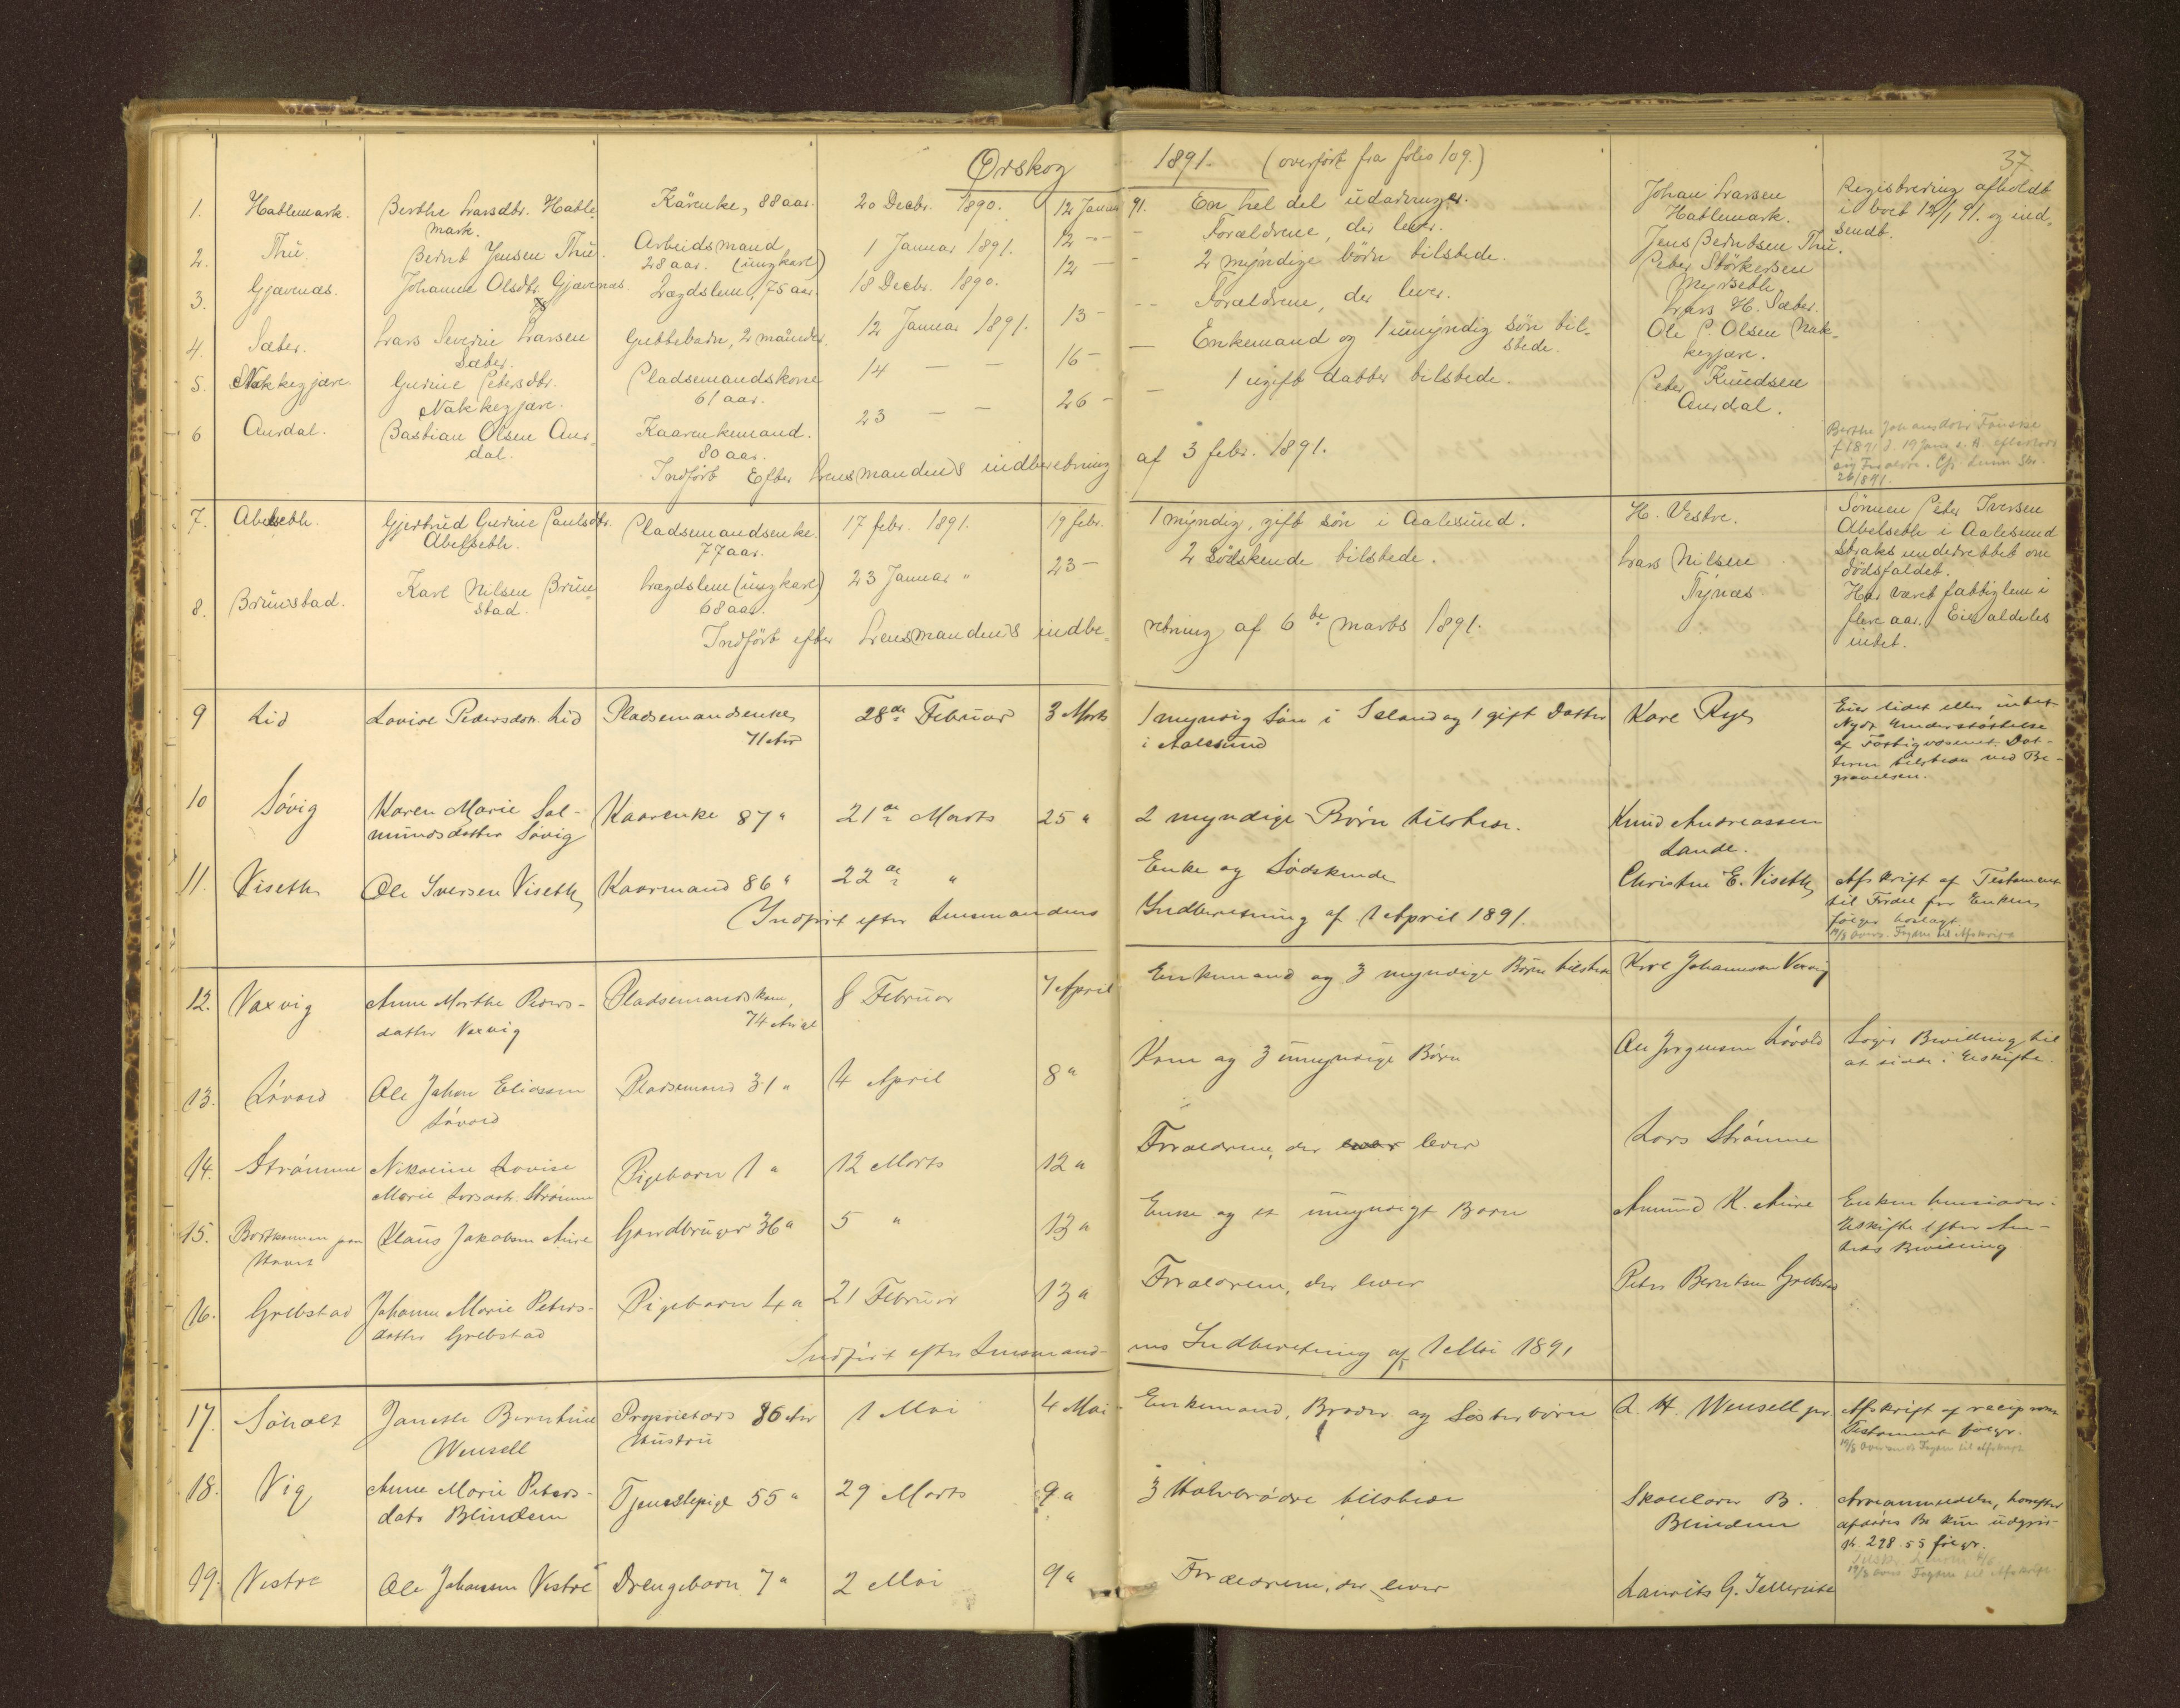 Ørskog 1891. (overført fra folio 109.) 37
1. Hatlemark. Berthe Larsdtr. Hatle- Kårenke, 88 aar. 20 Decbr. 1890. 12 Januar 91. En hel del udarvinger. Johan Larsen Registrering afholdt
mark. Hatlemark. i boet 12/1 91. og ind-
sendt.
2. Thu. Bernt Jensen Thu. Arbeidsmand 1 Januar 1891. 12 - - - Forældrene, der lever. Jens Berntsen Thu.
28 aar. (ungkarl)
3. Gjævenæs. Johanne Olsdtr. Gjævenæs Lægdslem, 75 aar. 18 Decbr. 1890. 12 - - 2 myndige børn tilstede. Peter Störkersen
Myrseth
4. Sæter. Lars Severin Larsen Guttebarn, 2 måneder. 12 Januar 1891. 13 - - - Forældrene, der lever. Lars H. Sæter.
Sæter.
5. Nakkegjære. Gurine Petersdtr. Pladsemandskone 14 — — 16 - — Enkemand og 1 umyndig søn til- Ole P. Olsen Nak-
Nakkegjære. 61 aar. stede. kegjære.
6 Aurdal. Bastian Olsen Aur- Kaarenkemand. 23 — — 26 - - 1 ugift datter tilstede. Peter Knudsen
dal. 80 aar. Aurdal.
Indført Efter Lensmandens indberetning af 3 febr. 1891.
Berthe Johansdatr Fauske
26/1891.
7. Abelseth. Gjertrud Gurine Paulsdtr. Pladsemandsenke 17 febr. 1891. 19 febr. 1 myndig, gift søn i Aalesund. H. Vestre. Sønnen Peter Iversen
Abelseth. 77 aar. Abelseth i Aalesund
straks underrettet om
dødsfaldet.
8. Brunstad. Karl Nilsen Brun- Lægdslem (ungkarl) 23 Januar " 23 - 2 Södskende tilstede. Lars Nilsen Har været fattiglem i
stad. 68 aar. Tynæs flere aar. Eier aldeles
intet.
Indført efter Lensmandens indbe- retning af 6te marts 1891.
9 Lid Lovise Pedersdatr. Lid Pladsemandsenke 28de Februar 3 Marts 1 myndig Søn i Island og 1 gift Datter Karl Rye Eier lidet eller intet
71 Aar i Aalesund Nyder Understøttelse
af Fattigvæsenet. Dat-
teren tilstede ved Be-
gravelsen.
10 Søvig Karen Marie Sal- Kaarenke 87 " 21de Marts 25 " 2 myndige Børn tilstede. Knud Andreassen
mundsdatter Søvig Lande.
11. Viseth Ole Iversen Viseth Kaarmand 86 " 22de " Enke og Sødskende Christen E. Viseth Afskrift af Testament
til Fordel for Enken
følger
Indført efter Lensmandens Indberetning af 1 April 1891.
12. Vaxvig Anne Marthe Peders- Pladsemandskone, 8 Februar 7 April Enkemand og 3 myndige Børn tilstede Karl Johannessen Vaxvig
datter Vaxvig 74 Aar
13. Løvold Ole Johan Eliassen Pladsemand 31 " 4 April 8 " Kone og 3 umyndige Børn Ole Jørgensen Løvold Søger Bevilling til
Løvold at sidde i Uskifte.
14. Strømme Nikoline Lovise Pigebarn 1 " 12 Marts 12 " Forældrene, der lever Lars Strømme
Marie Larsdatr. Strømme
15. Bortkommen paa Klaus Jakobsen Aure Gaardbruger 36 " 5 " 13 " Enke og et umyndigt Barn Amund K. Aure Enken hensidder i
Havet Uskifte efter Am-
tets Bevilling
16. Grebstad Johanne Marie Peters- Pigebarn 4 " 21 Februar 13 " Forældrene, der lever Peter Berntsen Grebstad
datter Grebstad
Indført efter Lensmand- ens Indberetning af 1 Mai 1891
17. Søholt Janette Berntine Proprietærs 86 Aar 1 Mai 4 Mai Enkemand, Broder og Søsterbørn L. H. Wensell jr. Afskrift af reciprokt
Wensell Hustru Testament følger.
18. Vig Anne Marie Peters- Tjenestepige 55 " 29 Marts 9 " 3 Halvbrødre tilstede Skolelærer B.
datr Blindem Blindem
K. 298.55 følger.
19. Vestre Ole Johansen Vestre Drengebarn 7 " 2 Mai 9 " Forældrene, der lever Laurits G.